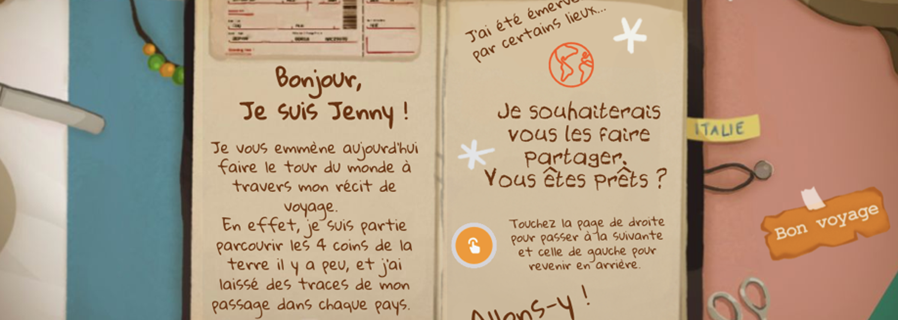 Bonjour,
Je suis Jenny !
Je vous emmène aujourd'hui
faire le tour du monde à
travers mon récit de
voyage.
En effet, je suis partie
parcourir les 4 coins de la
terre il y a peu, et j'ai
laissé des traces de mon
passage dans chaque pays.
J'ai été
par certains lieux...
Je souhaiterais
vous les faire
partager.
Vous êtes prêts ?
Touchez la page de droite
pour passer à la suivante
et celle de gauche pour
revenir en arrière.
Allons-y !
ITALIE
Bon voyage